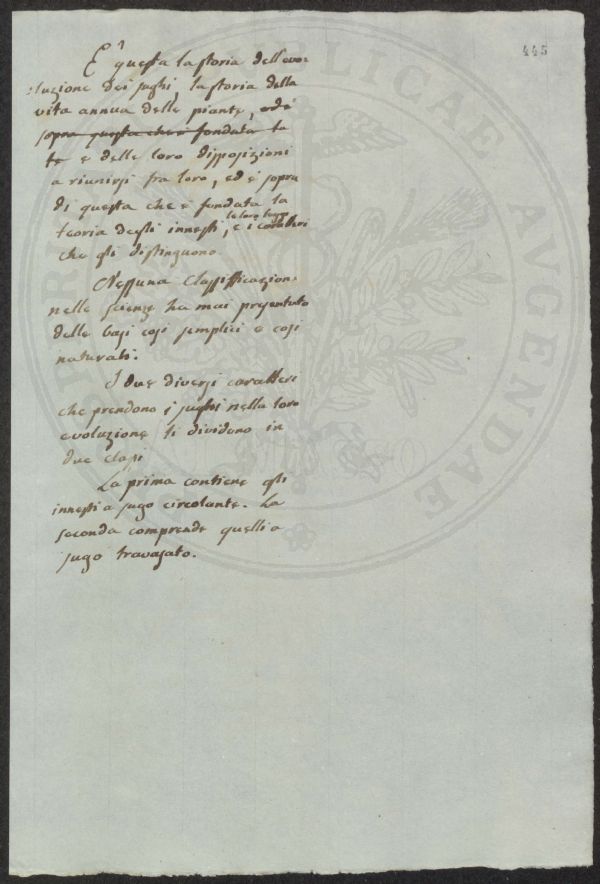 445
E' questa la storia dell'evo-
luzione dei sughi, la storia della
vita annua delle piante, ed è
sopra questa che è fondata la
te e delle loro disposizioni
a riunirsi fra loro, ed è sopra
di questa che è fondata la
teoria degli innesti, e i caratteri
che gli distinguono
Nessuna classificazione
nelle scienze ha mai presentato
delle basi così semplici e così
naturali.
I due diversi caratteri
che prendono i sughi nella loro
evoluzione li dividono in
due classi
La prima contiene gli
innesti a sugo circolante. La
seconda comprende quelli a
sugo travasato.